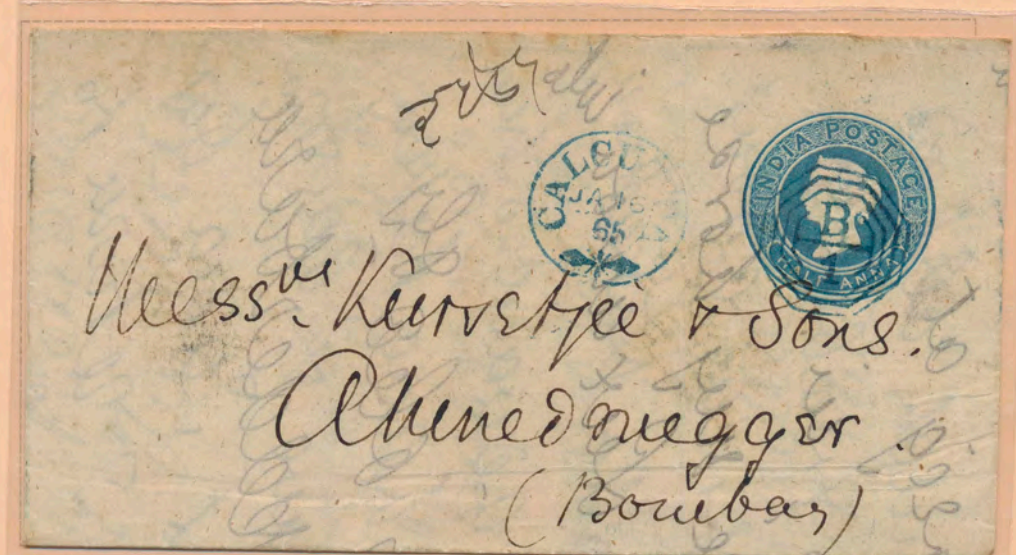 CALCUTTA
JA 16
65
INDIA POSTAGE
B
1
HALF ANNA
Mess.rs Kursetjee & Sons.
Ahmednuggger.
(Bombay)